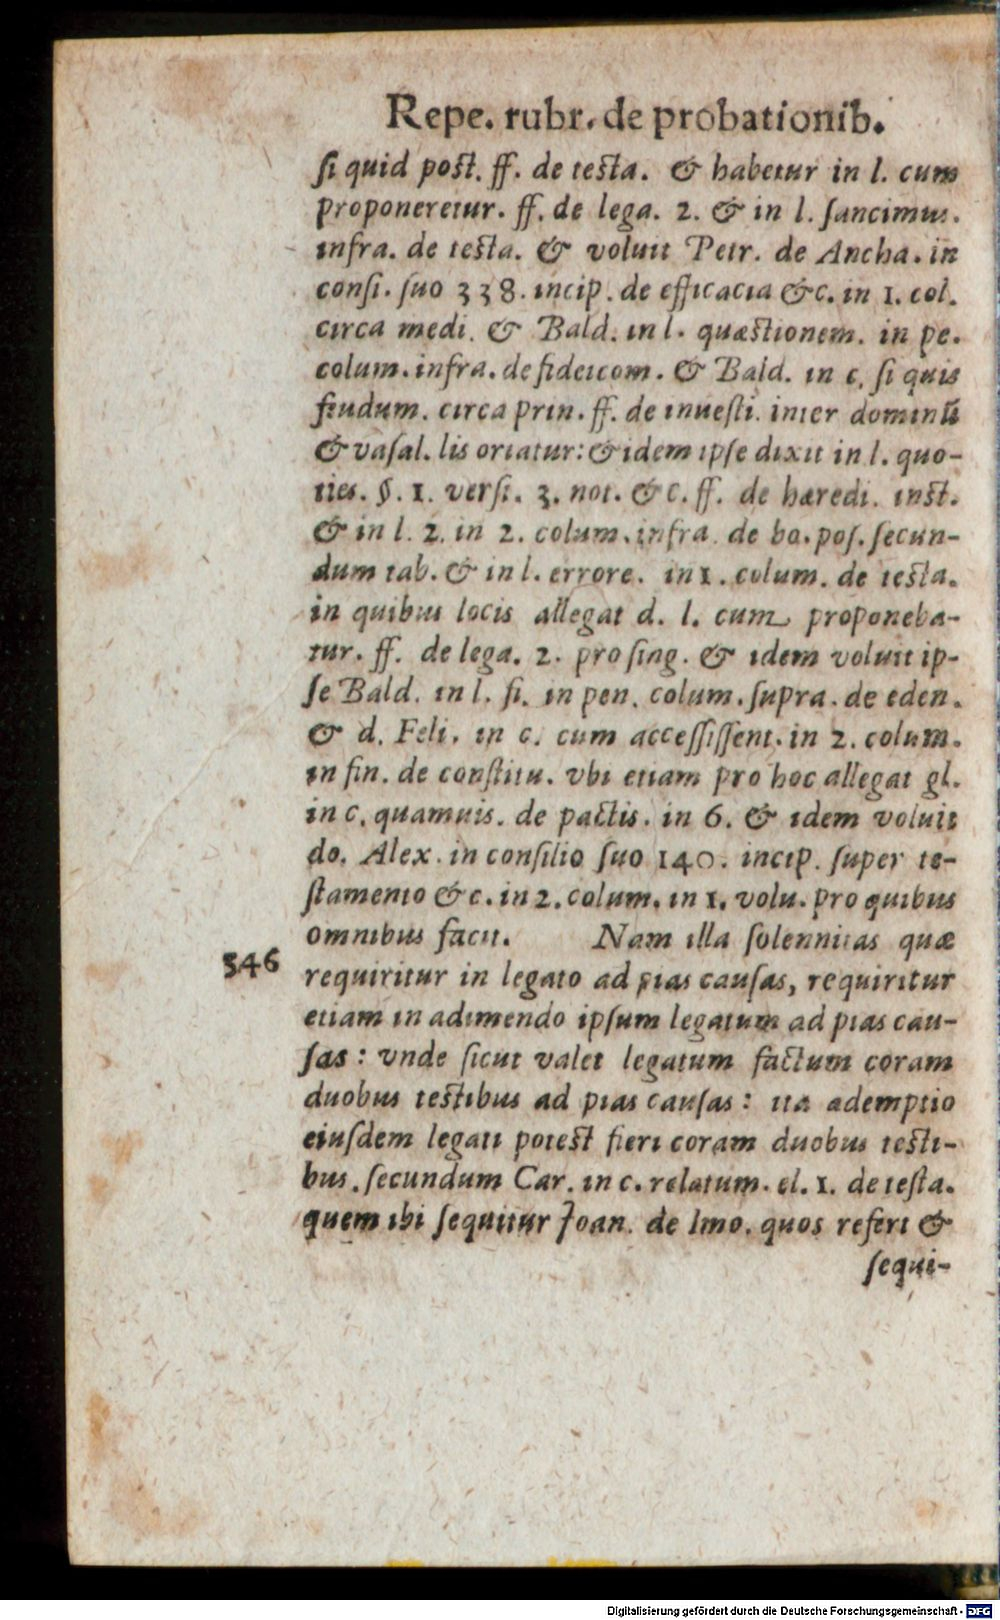 Repe. rubr. de probationib.
ſi quid poſt. ff. de teſta. & habetur in l. cum
proponeretur. ff. de lega. 2. & in l. ſancimus.
infra. de teſta. & voluit Petr. de Ancha. in
conſi. ſuo 338. incip. de efficacia &c. in 1. col.
circa medi. & Bald. in l. quæſtionem. in pe.
colum. infra. de fideicom. & Bald. in c. ſi quis
feudum. circa prin. ff. de inueſti. inter dominũ
& vaſal. lis oriatur: & idem ipſe dixit in l. quo-
ties. §. 1. verſi. 3. not. &c. ff. de hæredi. inſt.
& in l. 2. in 2. colum. infra. de bo. poſ. ſecun-
dum tab. & in l. errore. in 1. colum. de teſta.
in quibus locis allegat d. l. cum proponeba-
tur. ff. de lega. 2. pro ſing. & idem voluit ip-
ſe Bald. in l. fi. in pen. colum. ſupra. de eden.
& d. Feli. in c. cum acceſſiſſent. in 2. colum.
in fin. de conſtitu. vbi etiam pro hoc allegat gl.
in c. quamuis. de pactis. in 6. & idem voluit
do. Alex. in conſilio ſuo 140. incip. ſuper te-
ſtamento &c. in 2. colum. in 1. volu. pro quibus
omnibus facit. Nam illa ſolennitas quæ
546
requiritur in legato ad pias cauſas, requiritur
etiam in adimendo ipſum legatum ad pias cau-
ſas: vnde ſicut valet legatum factum coram
duobus teſtibus ad pias cauſas: ita ademptio
eiuſdem legati poteſt fieri coram duobus teſti-
bus. ſecundum Car. in c. relatum. el. 1. de teſta.
quem ibi ſequitur Joan. de Imo. quos refert &
ſequi-
Digitalisierung gefördert durch die Deutsche Forschungsgemeinschaft - DFG